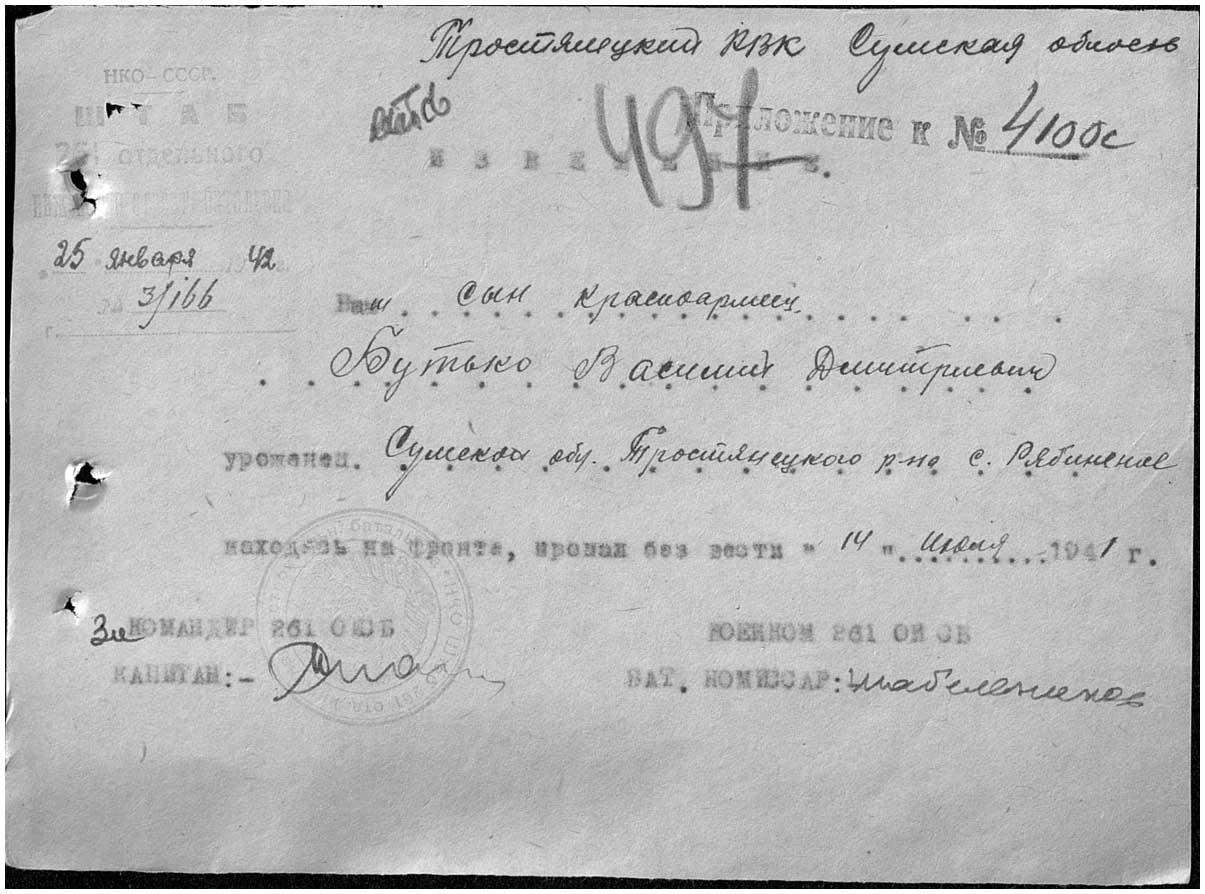 Тростянецкий РВК Сумская область
НКО-СССР.
ШТАБ
Приложение к № 4100с
261 отдельного
ИЗВЕЩЕНИЕ.
497
25 января 1942 г.
№ 3/166
Ваш сын красноармеец
Бутько Василий Дмитриевич
уроженец. Сумской обл. Тростянецкого р-на с.
находясь на фронте, пропал без вести " 14 " июля 1941 г.
Зам КОМАНДИР 261 ОИСБ
ВОЕНКОМ 261 ОИСБ
КАПИТАН:-
БАТ. КОМИССАР: